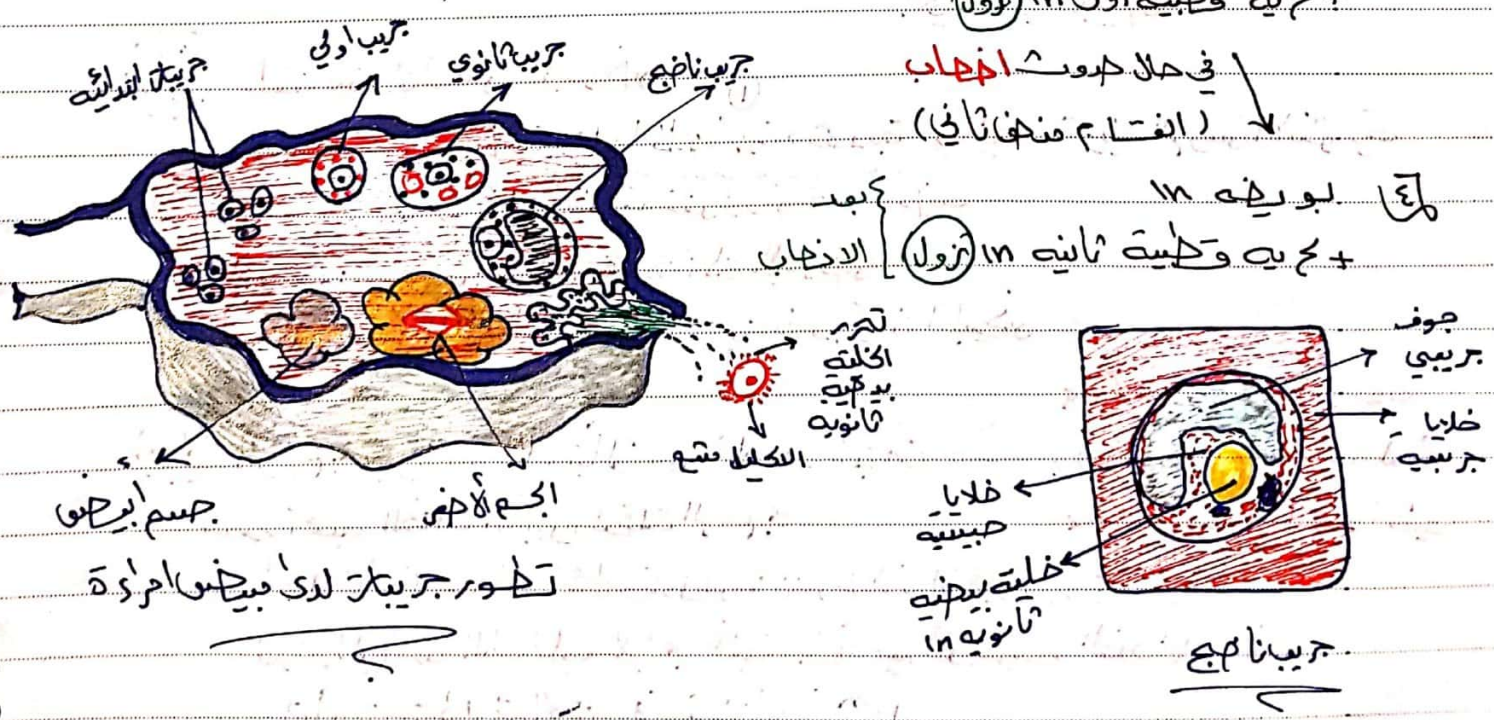 كرية قطبية أولى 1n تزول
في حال حدوث اخصاب
(انقسام منصف ثاني)
٤ بويضه 1n
+ كريه قطبية ثانيه 1n تزول
بعد
الاخصاب
جريبات ابتدائيه
جريب اولي
جريب ثانوي
جريب ناضج
تحرر
الخلية
بيضية
ثانويه
الاكليل مشع
جسم أبيض
الجسم الأصفر
تطور جريبات لدى مبيض امرأة
جوف
جريبي
خلايا
جريبيه
خلايا
حبيبيه
خلية بيضيه
ثانويه 1n
جريب ناضج